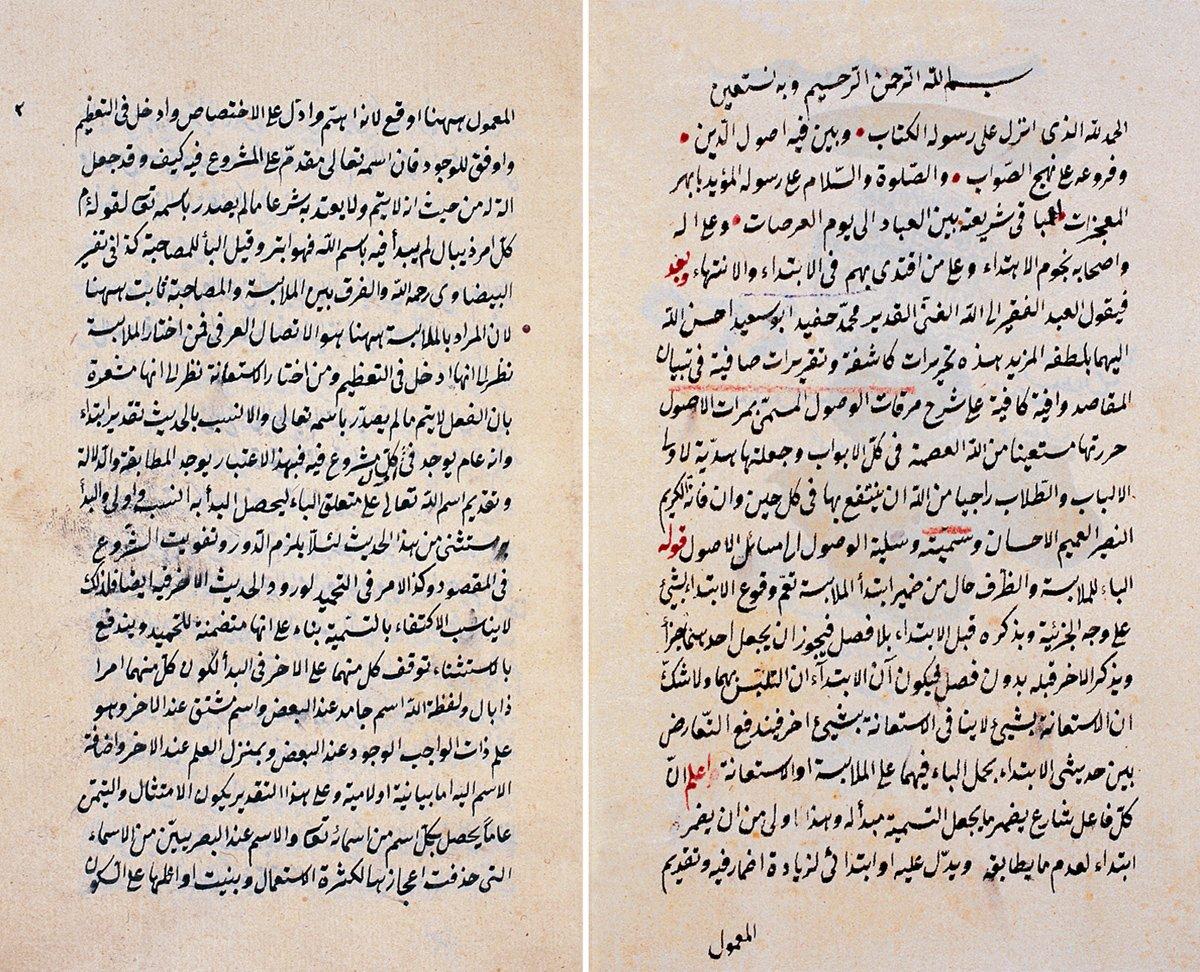 بسم الله الرحمن الرحيم وبه نستعين
الحمد لله الذى انزل على رسوله الكتاب • وبين فيه اصول الدين •
وفروعه على نهج الصواب • والصلوة والسلام على رسوله المؤيد بابهر
المعجزات فى شريعته بين العباد الى يوم العرصات • وعلى اله
واصحابه نجوم الاهتداء وعلى من اقتدى بهم فى الابتداء والانتهاء وبعد
فيقول العبد الفقير الى الله الغنى القدير محمد حفيد ابو سعيد احسن الله
اليهما بلطفه المزيد هذه تحريرات كاشفة وتقريرات صافية فى تبيان
المقاصد وافية كافية على شرح مرقات الوصول المسمى بمرات الاصول
حررتها مستعينا من الله العصمة فى كل الابواب وجعلتها هدية لاولى
الالباب والطلاب راجيا من الله ان ينتفع بها فى كل حين وان فانه الكريم
النصر العميم الاحسان وسميته وسيلة الوصول الى مسائل الاصول قوله
الباء للملابسة والظرف حال من ضمير ابتدأ الملابسة تعم وقوع الابتداء بشئ
على وجه الجزئية وبذكره قبل الابتداء بلا فصل فيجوز ان يجعل احدهما جزأ
ويذكر الاخر قبله بدون فصل فيكون آن الابتدآء ان التلبس بهما ولا شك
ان الاستعانة بشيئ لا ينافى الاستعانة بشيئ اخر فيندفع التعارض
بين حديثى الابتداء بحمل الباء فيهما على الملابسة او الاستعانة اعلم ان
كل فاعل شارع يضمر ما يجعل التسمية مبدأ له وهذا اولى من ان يضمر
ابتداء لعدم ما يطابقه ويدل عليه او ابتدائى لزيادة اضمار فيه وتقديم
المعمول
٢
المعمول ههنا اوقع لانه اهم وادل على الاختصاص وادخل فى التعظيم
واوفق للوجود فان اسمه تعالى مقدم على المشروع فيه كيف وقد جعل
الة له من حيث انه لا يتم ولا يعتد به شرعا ما لم يصدر باسمه تعالى لقوله م
كل امر ذى بال لم يبدأ فيه باسم الله فهو ابتر وقيل البأ للمصاحبة كذا فى تفسير
البيضاوى رحمه الله والفرق بين الملابسة والمصاحبة ثابت ههنا
لان المراد بالملابسة ههنا هو الاتصال العرفى فمن اختار الملابسة
نظر الى انها ادخل فى التعظيم ومن اختار الاستعانة نظر الى انها مشعرة
بان الفعل لا يتم ما لم يصدر باسمه تعالى والانسب بالحديث تقدير ابتداء
وانه عام يوجد فى اول كل مشروع فيه فبهذا الاعتبار يوجد المطابقة والدلالة
وتقديم اسم الله تعالى على متعلق الباء ليحصل البدأ به انسب واولى والبدأ
مستثنى من هذا الحديث لئلا يلزم الدور وتفويت الشروع
فى المقصود وكذا الامر فى التحميد لورود الحديث الاخر فيه ايضا فلذلك
لا يناسب الاكتفاء بالتسمية بناء على انها متضمنة للتحميد ويندفع
بالاستثناء توقف كل منهما على الاخر فى البدأ لكون كل منهما امرا
ذا بال ولفظة الله اسم جامد عند البعض واسم مشتق عند الاخر وهو
علم ذات الواجب الوجود عند البعض وبمنزل العلم عند الاخر واضافة
الاسم اليه اما بيانية او لامية وعلى هذا التقدير يكون الامتثال والتيمن
عاما يحصل بكل اسم من اسمائه تعالى والاسم عند البصريين من الاسماء
التى حذفت اعجازها لكثرة الاستعمال وبنيت اوائلها على السكون